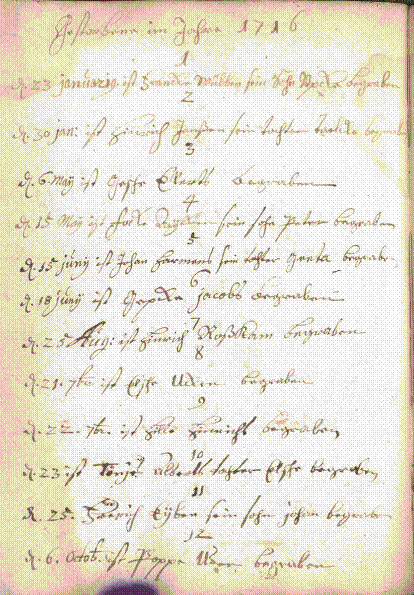 Gestorbene im Jahre 1716
1
d. 23 januarij ist sein Sohn begraben
2
d. 30 jan: ist Hinrich Janssen sein tochter begraben
3
d. 6 May ist Gesche Ekerts begraben
4
d. 15 May ist sein sohn Peter begraben
5
d. 15 junij ist Johan Harmens sein tochter Greta begraben
6
d. 18 junij ist jacobs begraben
7
d. 25 Aug: ist Hinrich Roßkam begraben
8
d. 21. 7br ist Elsche begraben
9
d. 22. 7br. ist Hille Hinrichs begraben
10
d. 23 ist Tönjes Albers tochter Elsche begraben
11
d. 25. Eyben sein sohn johan begraben
12
d. 6. Octob. ist Poppe begraben